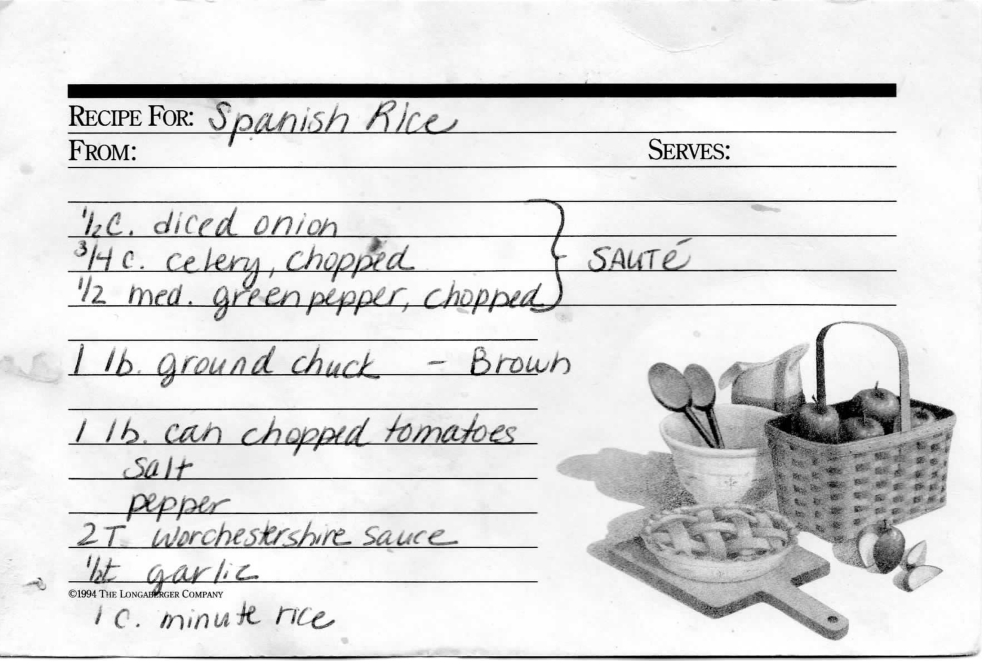 RECIPE FOR: Spanish Rice
FROM: SERVES:
1/2 c. diced onion
3/4 c. celery, chopped
SAUTÉ
1/2 med. green pepper, chopped
1 lb. ground chuck - Brown
1 lb. can chopped tomatoes
salt
pepper
2 T worchestershire sauce
1/2t garlic
©1994 THE LONGABERGER COMPANY
1 c. minute rice